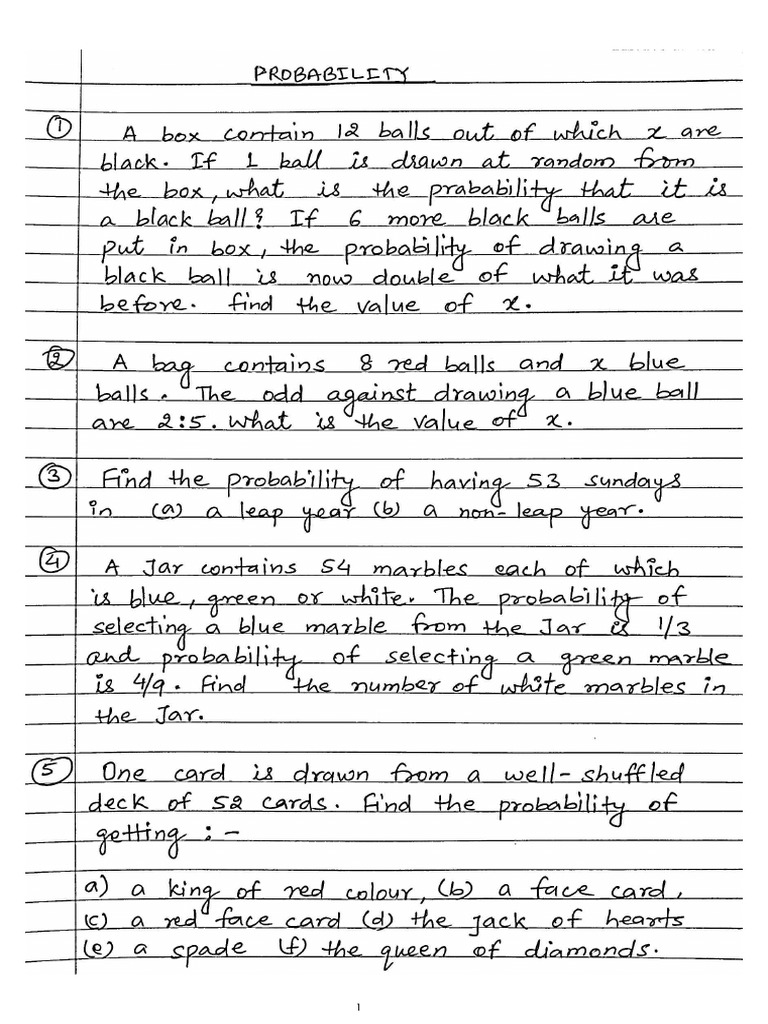 PROBABILITY
① A box contain 12 balls out of which x are
black. If 1 ball is drawn at random from
the box, what is the prabability that it is
a black ball? If 6 more black balls are
put in box, the probability of drawing a
black ball is now double of what it was
before. find the value of x.
② A bag contains 8 red balls and x blue
balls. The odd against drawing a blue ball
are 2:5. What is the value of x.
③ Find the probability of having 53 sundays
in (a) a leap year (b) a non-leap year.
④ A Jar contains 54 marbles each of which
is blue, green or white. The probability of
selecting a blue marble from the Jar is 1/3
and probability of selecting a green marble
is 4/9. Find the number of white marbles in
the Jar.
⑤ One card is drawn from a well-shuffled
deck of 52 cards. Find the probability of
getting :-
a) a king of red colour, (b) a face card,
(c) a red face card (d) the jack of hearts
(e) a spade (f) the queen of diamonds.
1